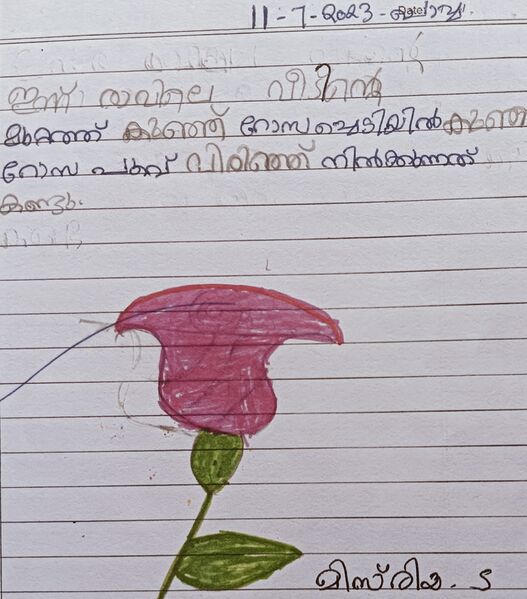 11-7-2023-ചൊവ്വ.
ഇന്ന് രാവിലെ വീടിന്റെ
മുറ്റത്ത് കുഞ്ഞ് റോസചെടിയിൽ കുഞ്ഞ
റോസ പൂവ് വിരിഞ്ഞ് നിൽക്കുന്നത്
കണ്ടു.
മിസ്രിയ. S